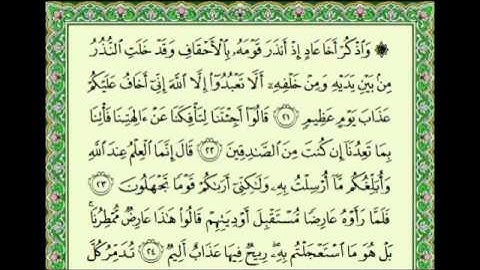 ۞ وَاذْكُرْ أَخَا عَادٍ إِذْ أَنذَرَ قَوْمَهُ بِالْأَحْقَافِ وَقَدْ خَلَتِ النُّذُرُ
مِنْ بَيْنِ يَدَيْهِ وَمِنْ خَلْفِهِ أَلَّا تَعْبُدُوا إِلَّا اللَّهَ إِنِّي أَخَافُ عَلَيْكُمْ
عَذَابَ يَوْمٍ عَظِيمٍ ٢١ قَالُوا أَجِئْتَنَا لِتَأْفِكَنَا عَنْ آلِهَتِنَا فَأْتِنَا
بِمَا تَعِدُنَا إِن كُنتَ مِنَ الصَّادِقِينَ ٢٢ قَالَ إِنَّمَا الْعِلْمُ عِندَ اللَّهِ
وَأُبَلِّغُكُم مَّا أُرْسِلْتُ بِهِ وَلَٰكِنِّي أَرَاكُمْ قَوْمًا تَجْهَلُونَ ٢٣
فَلَمَّا رَأَوْهُ عَارِضًا مُّسْتَقْبِلَ أَوْدِيَتِهِمْ قَالُوا هَٰذَا عَارِضٌ مُّمْطِرُنَا
بَلْ هُوَ مَا اسْتَعْجَلْتُم بِهِ رِيحٌ فِيهَا عَذَابٌ أَلِيمٌ ٢٤ تُدَمِّرُ كُلَّ